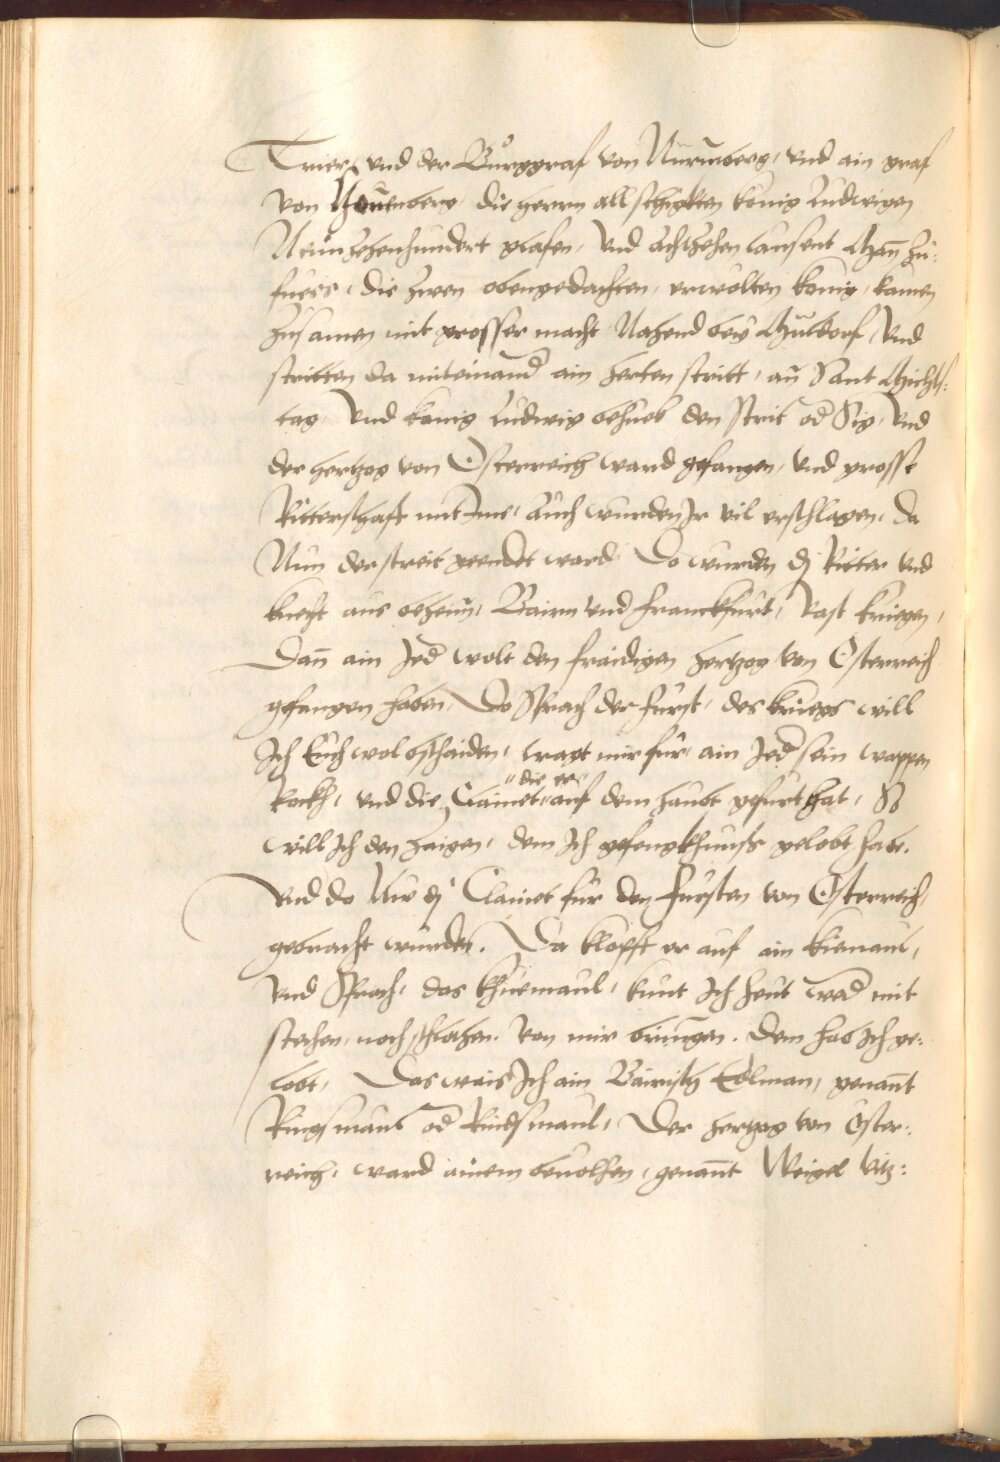 Trier, vnd der Burggraf von Nurmberg, vnd ain graf
von Hennenberg, die herrn all schigkten konig Ludwigen
Neunzehenhundert glafen, vnd achtzehen tausent Man zu-
fuess, die zwen obengedachten, erwolten konig, kamen
zusamen mit grosser macht Nahend bey Muldorf, vnd
stritten da miteinand ain herten stritt, an Sant Michls-
tag, vnd konig Ludwig behueb den strit od Sig, vnd
der hertzog von Osterreich ward gefangen, vnd grosse
Ritterschaft mit Ime, auch wurden Jr vil erschlagen, da
Nun der streit geendet ward Do wurden dj Ritter vnd
knecht aus behaim, Bairn vnd franckfurt, vast kriegen,
Dan ain Jed wolt den fraidigen hertzog von Osterreich
gefangen haben, Do Sprach der furst, des kriegs will
Ich Euch wol bschaiden, tragt mir fur, ain Jed sein wappen
Rockh, vnd die Clainet, "die er" auf dem haubt gefurt hat, So
will Ich den zaigen, dem Ich gefengkhnuss gelobt habe.
Vnd do Nue dj Clainet fur den fursten von Osterreich,
gebracht wurden. Da klopfft er auf ain kiemaul,
vnd Sprach, das khuemaul, kunt Ich heut wed mit
stechen, noch schlahen von mir bringen. dem hab Ich ge-
lobt, Das was Ich ain Bairisch Edlman, genant
Ringsmaul od Rindsmaul, Der hertzog von Oster-
reich, ward ainem beuolhen, genant Weigel Vitz-